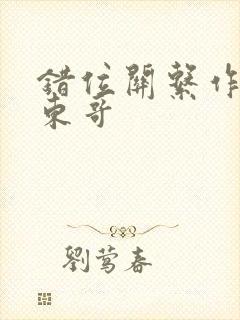 錯位關繫作
東哥
劉莺春